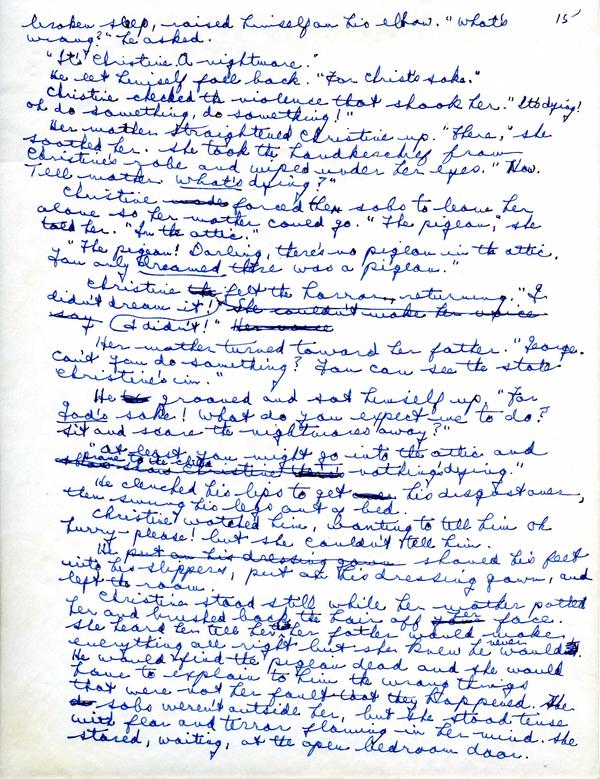 15
broken sleep, raised himself on his elbow. "What's
wrong?" he asked.
"It's Christine. A nightmare."
He let himself fall back. "For Christ's sake."
Christine checked the violence that shook her. "It's dying!
oh do something, do something!"
Her mother straightened Christine up. "There," she
soothed her. She took the handkerchief from
Christine's robe and wiped under her eyes. "Now.
Tell mother what's dying?"
Christine made forced the sobs to leave her
alone so her mother could go. "The pigeon," she
told her. "In the attic."
"The pigeon! Darling, there's no pigeon in the attic.
You only dreamed there was a pigeon."
Christine felt the horror returning. "I
didn't dream it! She couldn't make her voice
say I didn't!" Her voice
Her mother turned toward her father. "George.
can't you do something? You can see the state
Christine's in."
He groaned and sat himself up. "For
God's sake! What do you expect me to do?
Sit and scare the nightmares away?"
"At least you might go into the attic and
prove to the child
show Christine nothing's dying."
He clenched his lips to get his disgust over,
then swung his legs out of bed.
Christine watched him, wanting to tell him oh
hurry - please! but she couldn't tell him.
He put on his dressing gown shoved his feet
into his slippers, put on his dressing gown, and
left the room.
Christine stood still while her mother patted
her and brushed back the hair off her face.
She heard her tell her her father would make
everything all right but she knew he never would.
He would find the pigeon dead and she would
have to explain to him the wrong things
that were not her fault that they happened. The
sobs weren't outside her, but she stood tense
with fear and terror flaming in her mind. She
stared, waiting, at the open bedroom door.